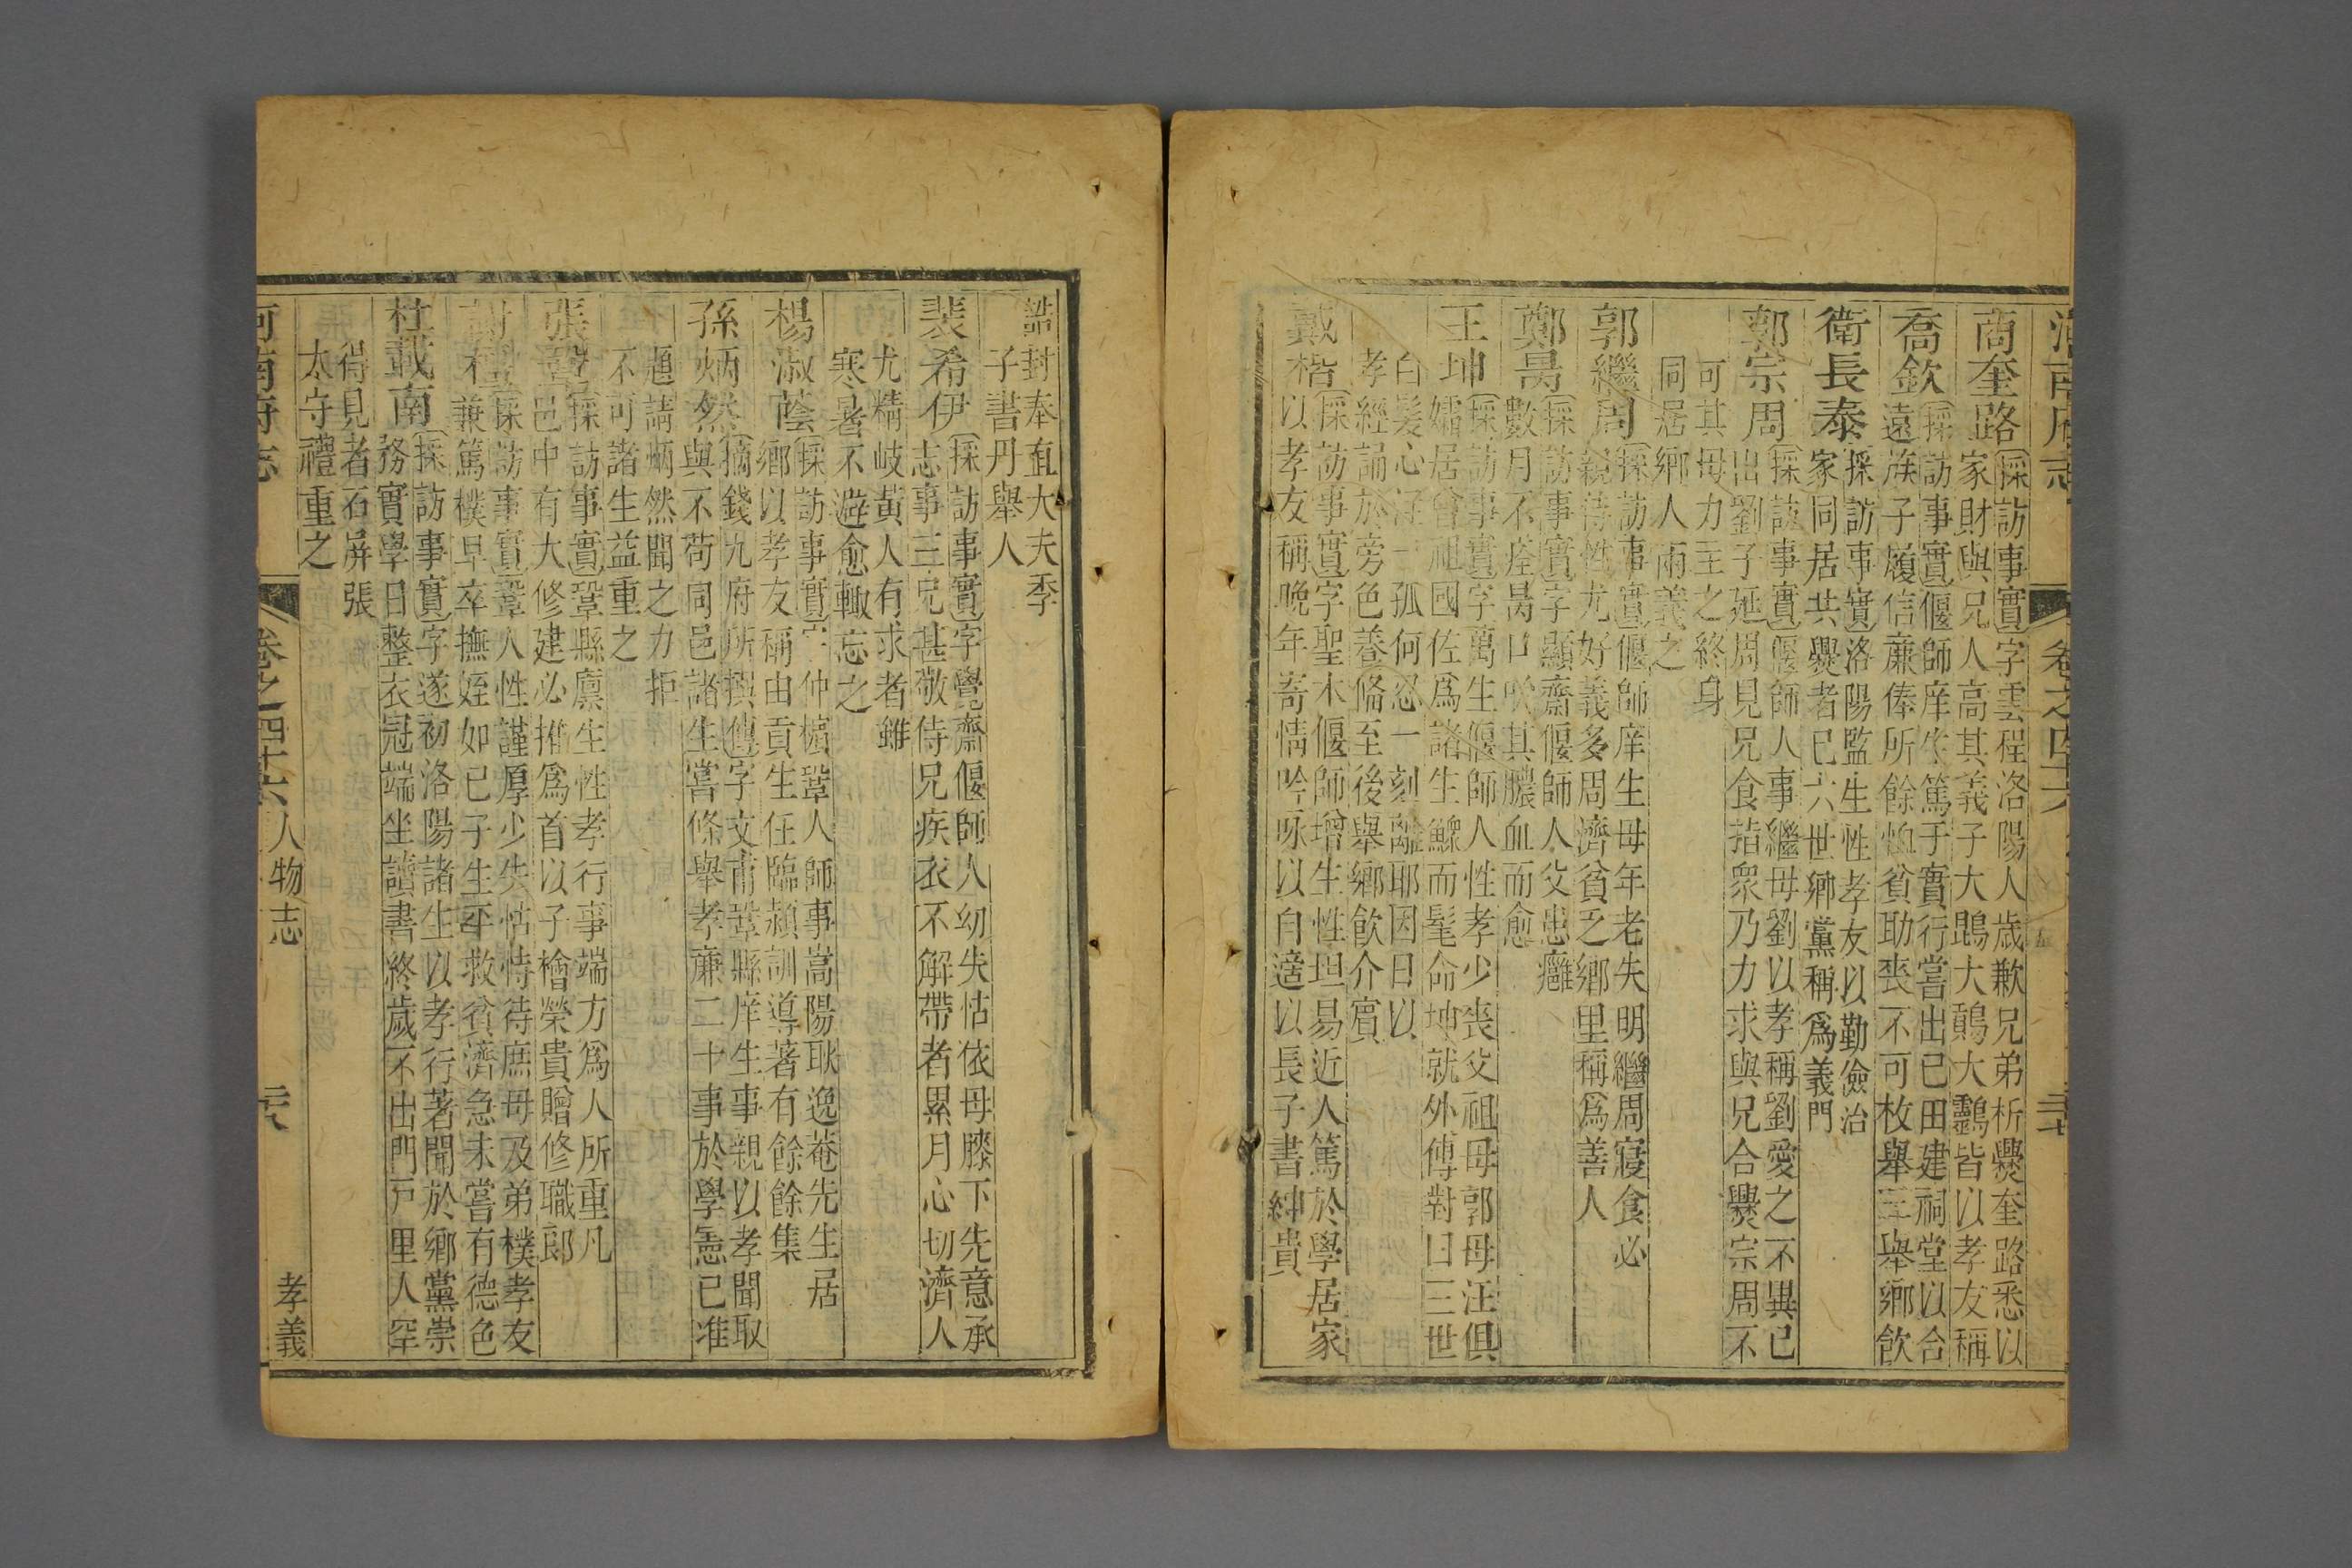 河南府志
卷之四十六
二十七
商奎路
採訪事實字雲程洛陽人歲歉兄弟析爨奎路悉以
家財與兄人高其義子大鵾大鶄大鸐皆以孝友稱
喬欽
採訪事實偃師庠生篤于實行嘗出已田建祠堂以合
遠族子履信廉俸所餘恤貧助喪不可枚舉三舉鄉飲
衛長泰
採訪事實洛陽監生性孝友以勤儉治
家同居共爨者已六世鄉黨稱為義門
郭宗周
採訪事實偃師人事繼母劉以孝稱劉愛之不異已
出劉子延周見兄食指衆乃力求與兄合爨宗周不
可其母力主之終身
同居鄉人兩義之
郭繼周
採訪事實偃師庠生母年老失明繼周寢食必
親侍性尤好義多周濟貧乏鄉里稱爲善人
鄭暠
採訪事實字顯齋偃師人父患癰
數月不瘥暠口吮其膿血而愈
王坤
採訪事實字萬生偃師人性孝少喪父祖母郭母汪俱
孀居會祖國佐爲諸生鰥而髦命坤就外傅對曰三世
白髮心汪一孤何忍一刻離耶因日以
孝經誦於旁色養脩至後舉鄉飲介賓
戴楷
採訪事實字聖木偃師增生性坦易近人篤於學居家
以孝友稱晚年寄情吟咏以自適以長子書紳貴
誥封奉直大夫季
子書丹舉人
裴希伊
採訪事實字覺齋偃師人幼失怙依母膝下先意承
志事三兄甚敬侍兄疾衣不解帶者累月心切濟人
尤精岐黃人有求者雖
寒暑不避愈輙忘之
楊淑蔭
採訪事實字仲檳鞏人師事嵩陽耿逸菴先生居
鄉以孝友稱由貢生任臨潁訓導著有餘餘集
孫炳然
摘錢九府所撰傳字文甫鞏縣庠生事親以孝聞取
與不苟同邑諸生嘗條舉孝廉二十事於學憲已准
題請炳然聞之力拒
不可諸生益重之
張
採訪事實鞏縣廪生性孝行事端方爲人所重凡
邑中有大修建必推爲首以子檜榮貴贈修職郎
謝
採訪事實鞏人性謹厚少失怙恃待庶母及弟樸孝友
兼篤樸早卒撫姪如已子生平救貧濟急未嘗有德色
杜載南
採訪事實字遂初洛陽諸生以孝行著聞於鄉黨崇
務實學日整衣冠端坐讀書終歲不出門戸里人罕
得見者石屏張
太守禮重之
河南府志
卷之四十六人物志
孝義